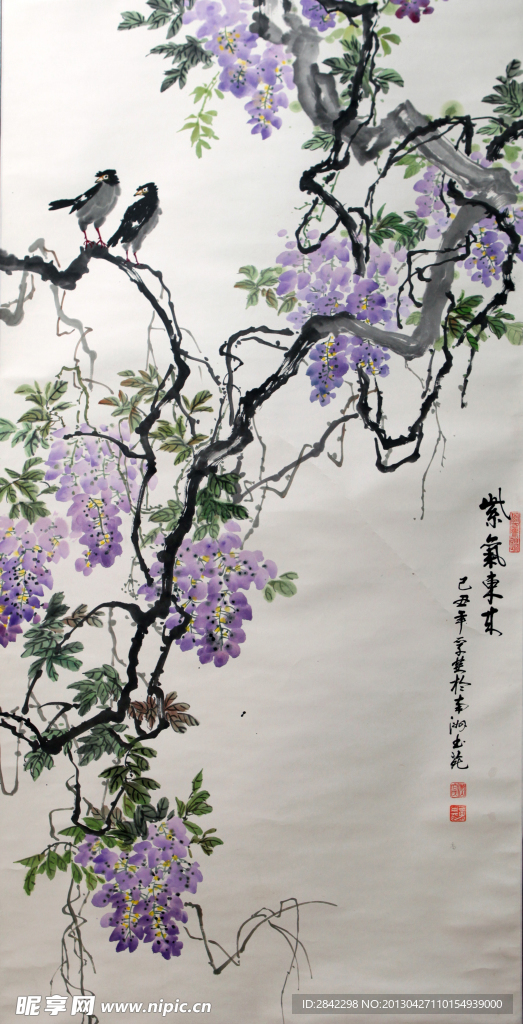 紫氣東来
己丑年 於南
昵享网 www.nipic.cn
ID:2842298 NO:20130427110154939000